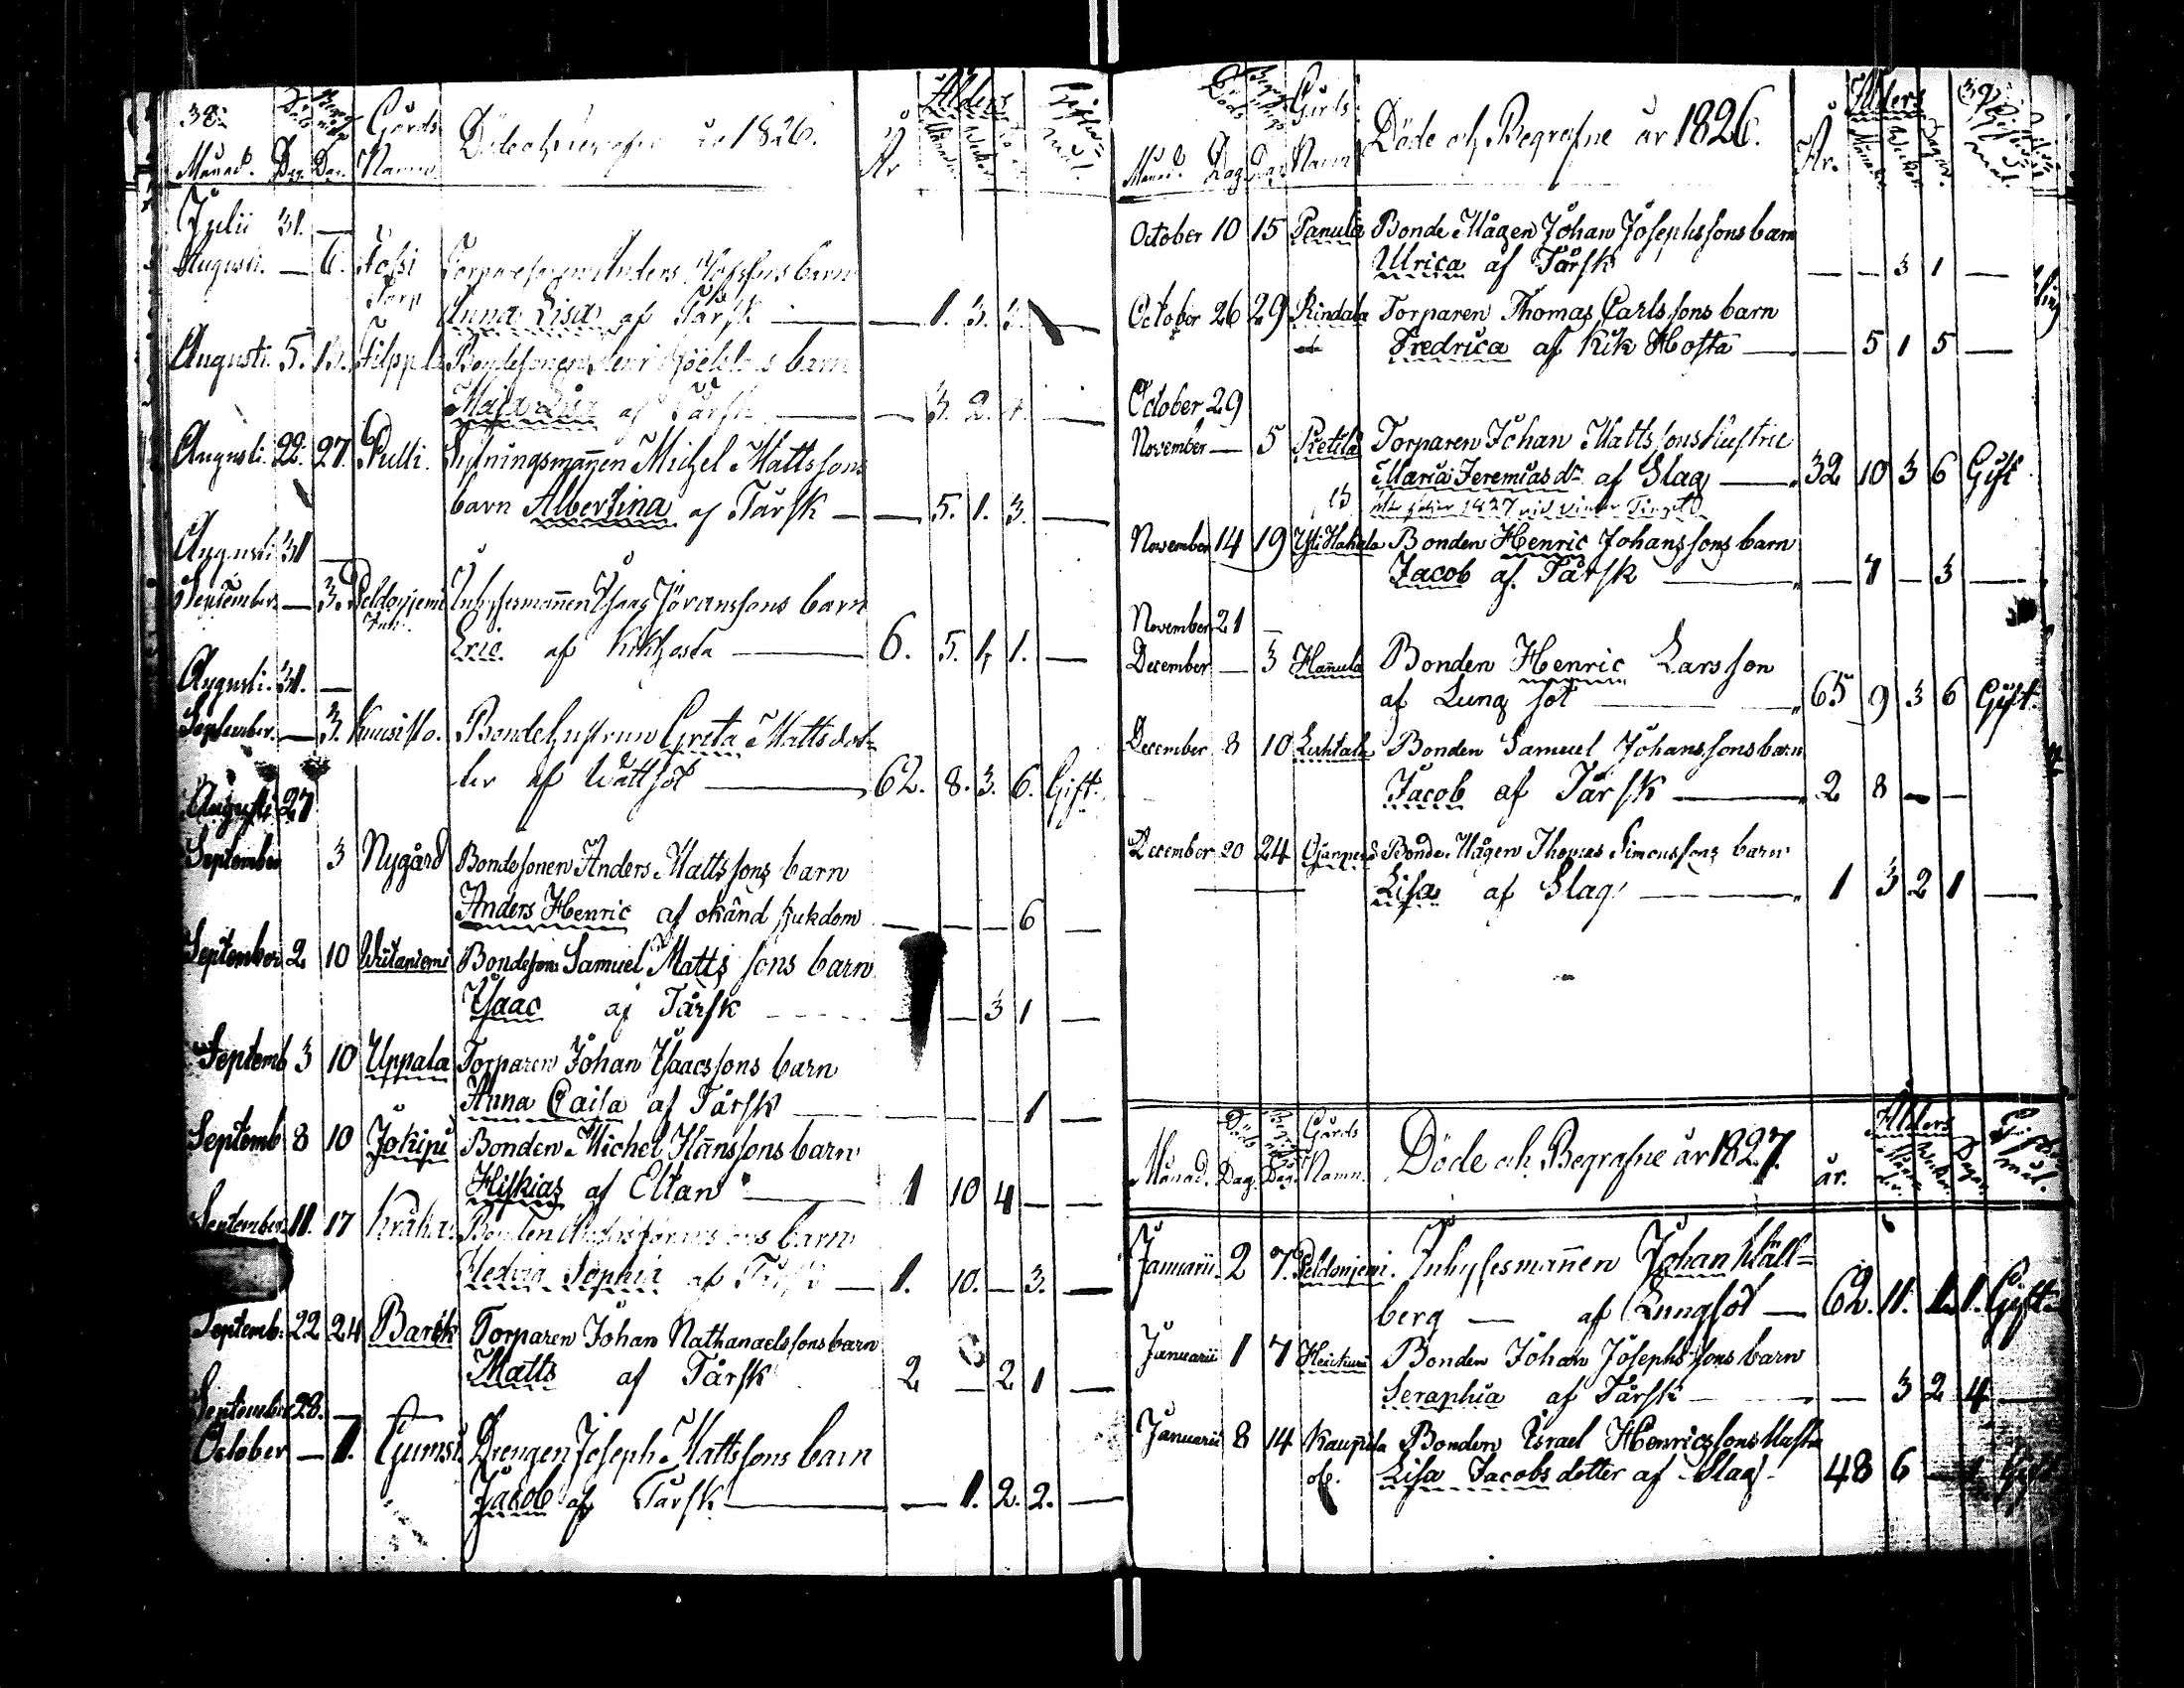 38. Döds Gårds Döde och Begrafne år 1826. År Ålders
Månad. Dag. Dag. Namn
Julii 31. —
Augusti. — 6. Torp
Anna Lisa af Tårsk — — 1. 3. 3. —
Augusti. 5. 13. Filppula Bondesonens barn
Maja Lisa af Tårsk — — 3. 2. 4. —
Augusti. 22. 27. Pulli. Michel Mattssons
barn Albertina af Tårsk — — 5. 1. 3. —
Augusti 31 —
September — 3. Peldoniemi Inhysesmannen Isaac Göranssons barn
Eric af Kikhosta — 6. 5. 1. 1. —
Augusti. 31. —
September. — 3. Kuusisto. Bondehustrun Greta Mattsdot-
ter af Wattsot — 62. 8. 3. 6. Gift.
Augusti 27
September 3 Nygård Bondesonen Anders Mattssons barn
Anders Henric af okänd sjukdom — — — 6 —
September 2 10 Wiitaniemi Bondeson Samuel Matts sons barn
Isaac af Tårsk — — 3 1 —
Septemb 3 10 Uppala Torparen Johan Isaacssons barn
Anna Caisa af Tårsk — 1 —
Septemb 8 10 Jokipii Bonden Michel Hanssons barn
Hiskias af Eltan — 1 10 4 — —
September 11. 17 barn
Hedvig Sophia af Tårsk — 1. 10. — 3. —
Septemb. 22 24 Barck Torparen Johan Nathanaelssons barn
Matts af Tårsk 2 — 2 1 —
September 28. —
October — 1. Drengen Joseph Mattssons barn
Jacob af Tårsk — — 1. 2. 2. —
Döds Gårds Döde och Begrafne år 1826. År. Ålders 39
Månad. Dag Dag Namn
October 10 15 Panula Bonde Mågen Johan Josephssons barn
Ulrica af Tårsk — — 3 1 —
October 26 29 Rindala Torparen Thomas Carlssons barn
Fredrica af Kik Hosta — — 5 1 5 —
October 29
November — 5 Pietilä Torparen Johan Mattssons Hustru
Maria Jeremias dr af Slag — 32 10 3 6 Gift
1827
November 14 19 Yli Hakala Bonden Henric Johanssons barn
Jacob af Tårsk — — 7 — 3 —
November 21 —
December — 3 Hannula Bonden Henric Larsson
af Lung sot — 65 9 3 6 Gift.
December 8 10 Luhtala Bonden Samuel Johanssons barn
Jacob af Tårsk — 2 8 — —
December 20 24 Ojanperä Bonde Mågen Thomas Simonssons barn
Lisa af Slag — 1 3 2 1 —
Döds Gårds Döde och Begrafne år 1827. år. Ålders
Månad. Dag. Dag. Namn.
Januarii. 2 7. Peldoniemi. Inhysesmannen Johan Häll-
berg — af Lungsot — 62. 11. 1. 1. Gift.
Januarii 1 7 Bonden Johan Josephssons barn
Seraphia af Tårsk — — 3 2 4 —
Januarii 8 14 Kauppila Bonden Israel Henricssons Hustru
Lisa Jacobs dotter af Slag. 48 6 —